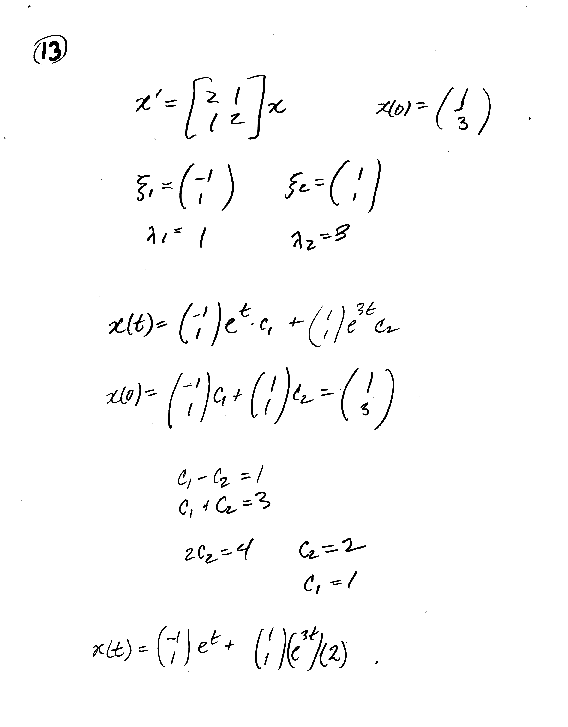 (13)
x' = [2 1; 1 2] x    x(0) = (1; 3)
ξ₁ = (-1; 1)    ξ₂ = (1; 1)
λ₁ = 1    λ₂ = 3
x(t) = (-1; 1) e^t · c₁ + (1; 1) e^{3t} c₂
x(0) = (-1; 1) c₁ + (1; 1) c₂ = (1; 3)
c₁ - c₂ = 1
c₁ + c₂ = 3
2c₂ = 4    c₂ = 2
c₁ = 1
x(t) = (-1; 1) e^t + (1; 1)(e^{3t})(2) .